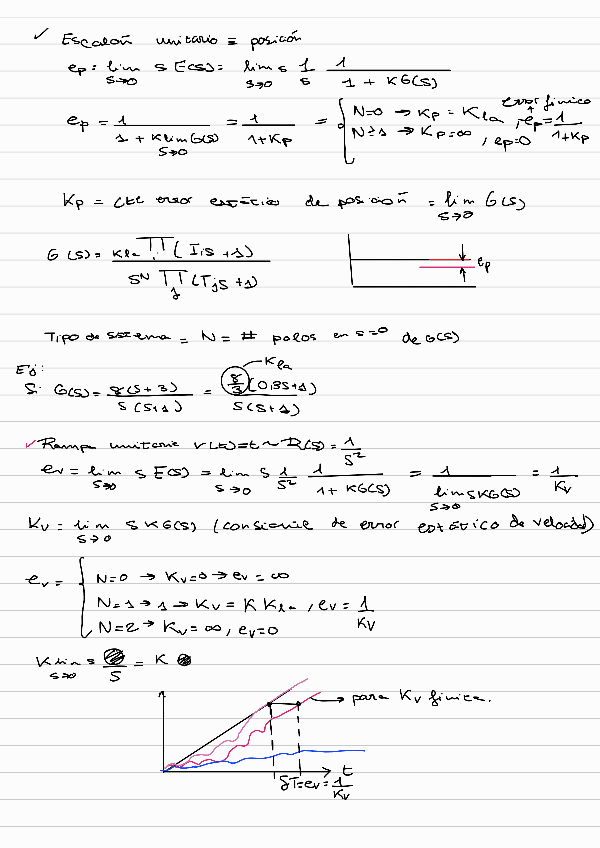 ✓ Escaloñ unitario ≡ posicóñ
ep = lim s→0 s E(s) = lim s→0 s 1/s 1/(1 + KG(s))
ep = 1/(1 + K lim s→0 G(s)) = 1/(1+Kp) = { N=0 → Kp = K la, ep = 1/(1+Kp) error finico
N≥1 → Kp = ∞, ep=0
Kp = cte error estático de posicióñ = lim s→0 G(s)
G(s) = Kla ∏ i (Iis + 1) / s^N ∏ j (Tjs + 1)
ep
Tipo de sistema = N = # polos en s=0 de G(s)
Ej:
Kla
Si G(s) = 8(s+3)/s(s+1) = 8/3 (0,3s+1)/s(s+1)
✓ Rampa unitaria r(t)=t ~ R(s) = 1/s²
ev = lim s→0 s E(s) = lim s→0 s 1/s² 1/(1 + KG(s)) = 1/lim s→0 sKG(s) = 1/Kv
Kv = lim s→0 s KG(s) (constante de error estático de velocidad)
ev = { N=0 → Kv=0 → ev = ∞
N=1 → 1 → Kv = K Kla, ev = 1/Kv
N=2 → Kv = ∞, ev=0
K lim s→0 s /s = K
→ para Kv finica.
t
δT=ev = 1/Kv